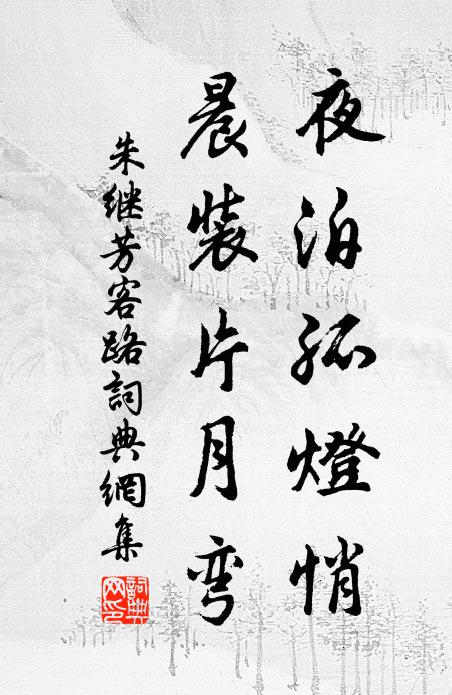 夜泊孤燈悄
晨裝片月弯
朱继芳客路詞典網集